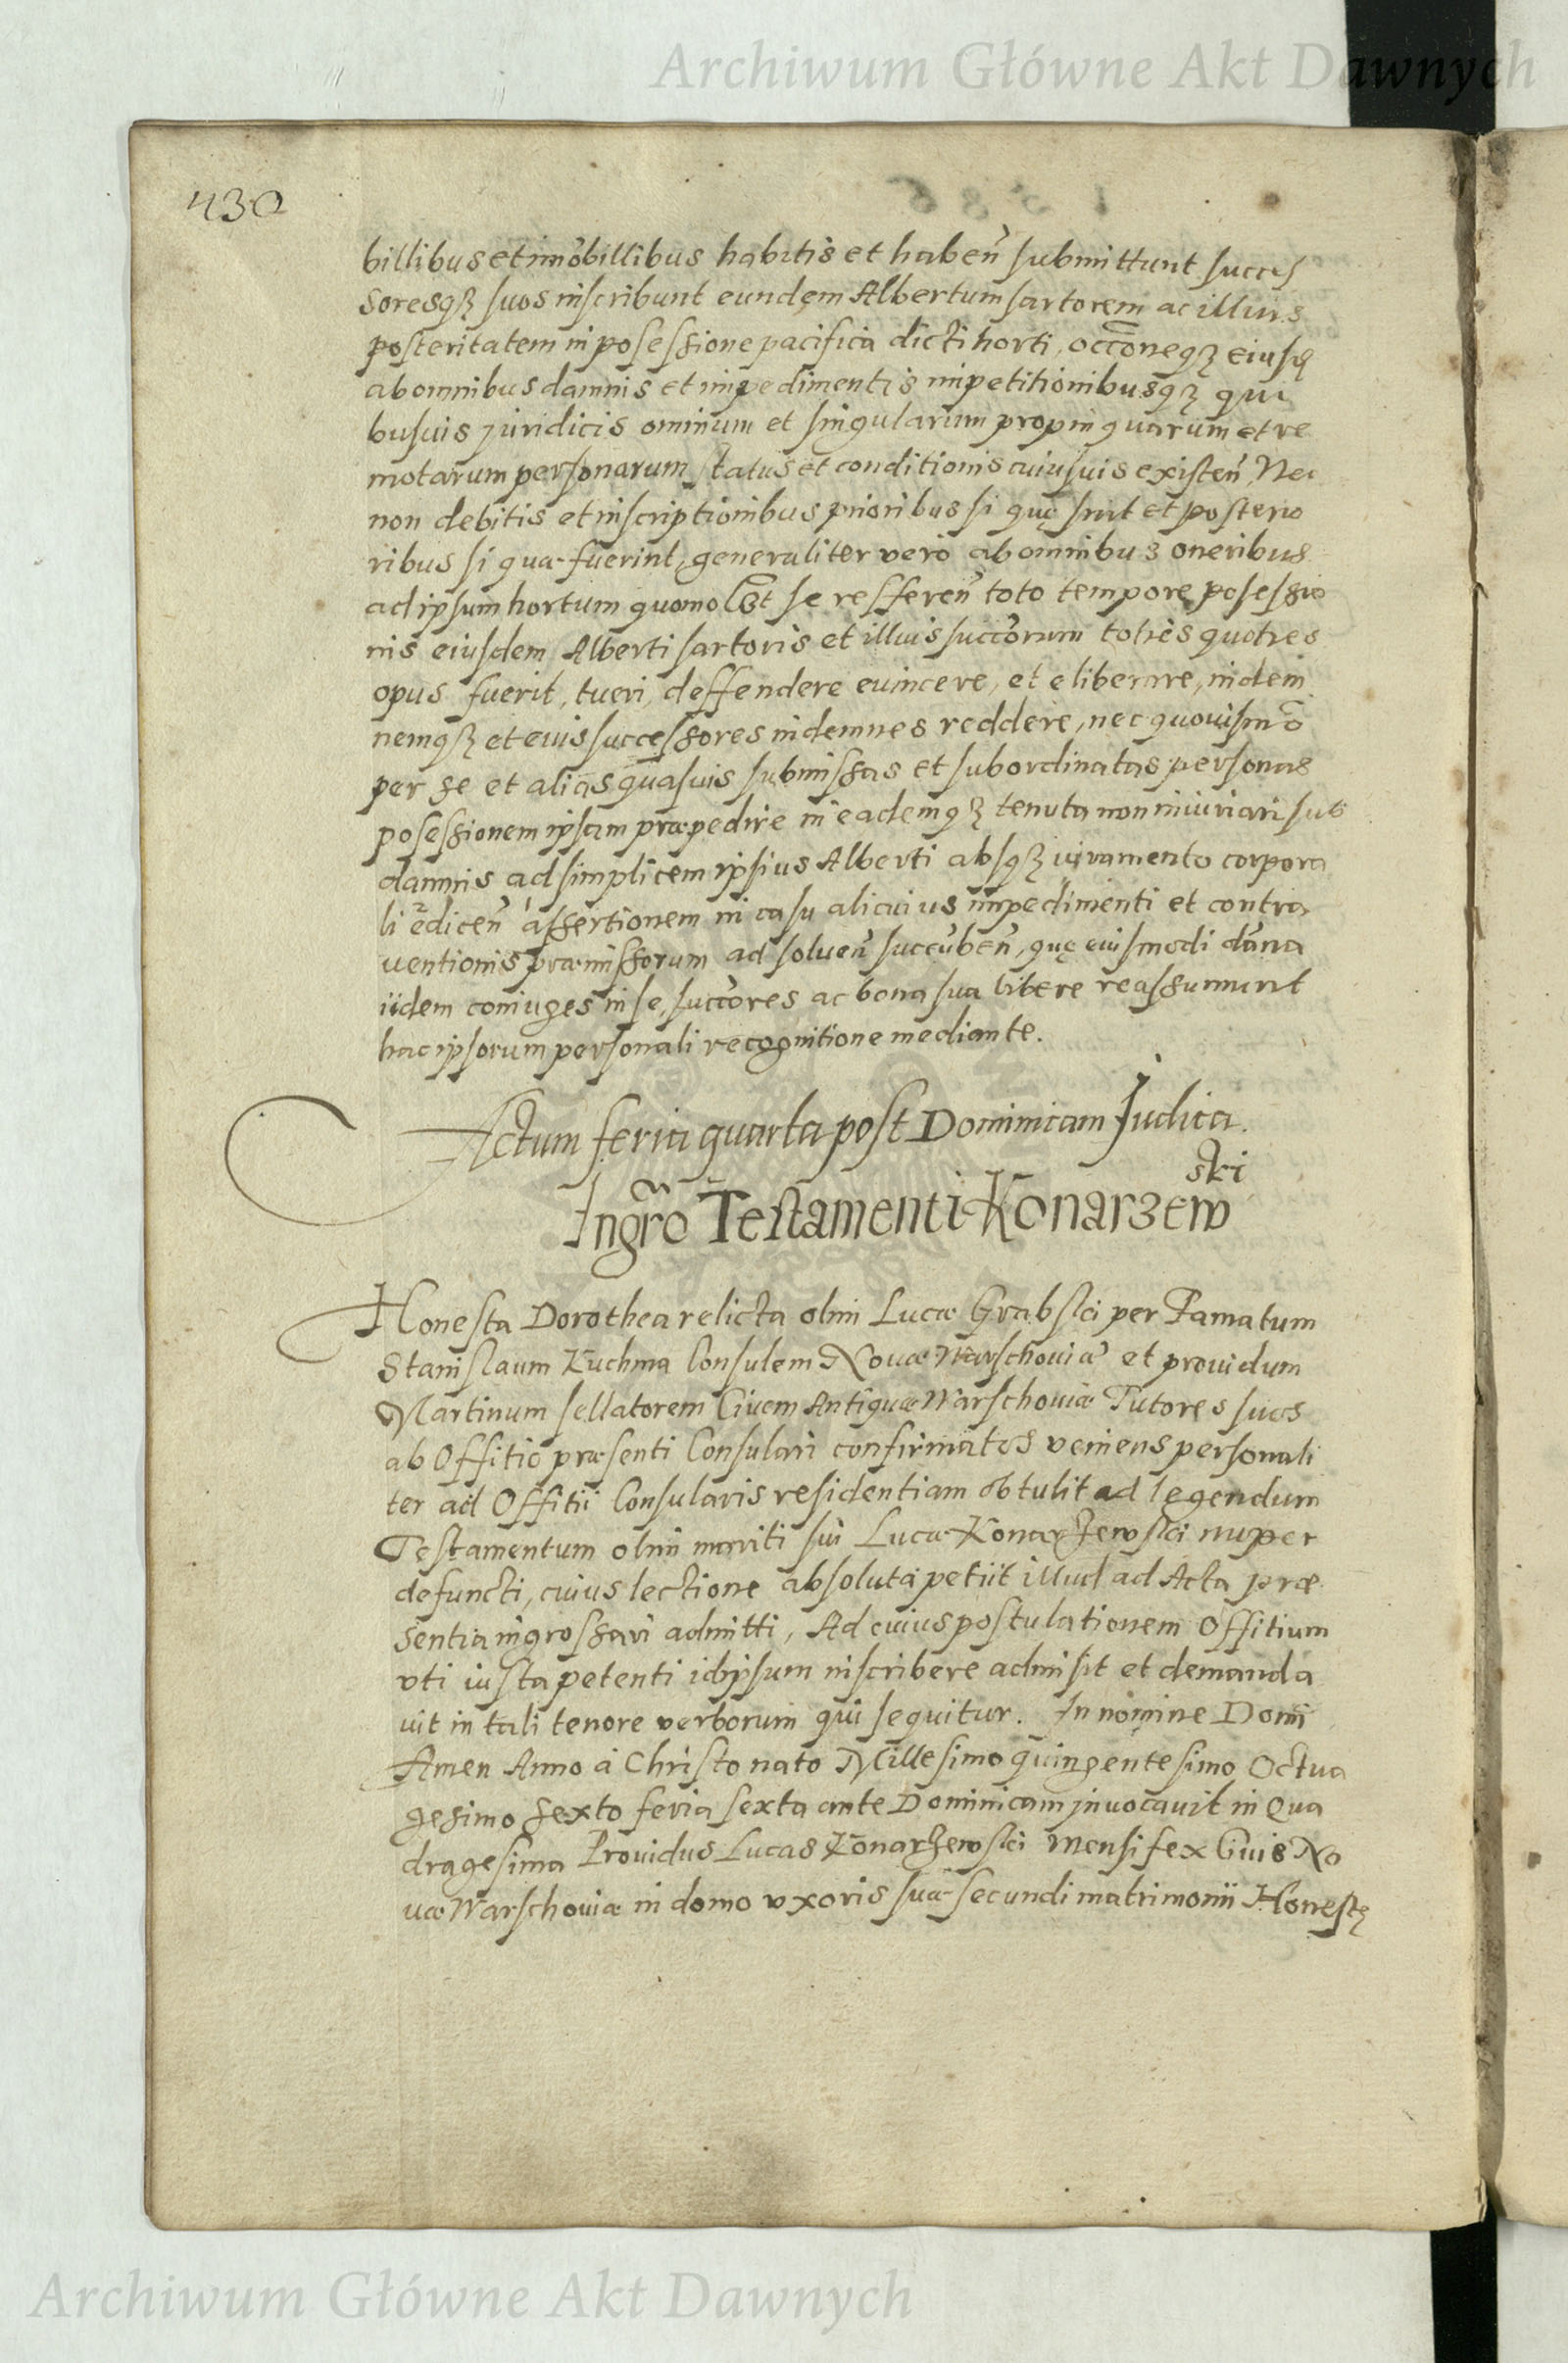 Archiwum Główne Akt Dawnych
430
billibus et imobillibus habitis et haben̄ submittunt succes
soresqȝ suos inscribunt eundem Albertum sartorem ac illius
posteritatem in posessione pacifica dicti horti, occōneqȝ eiusqȝ
ab omnibus damnis et impedimentis impetitionibusqȝ qui
busuis juridicis ominum et singularum propinquarum et re
motarum personarum status et conditionis cuiusuis existen̄ Nec
non debitis et inscriptionibus prioribus si quę sint et posterio
ribus si quæ fuerint, generaliter vero ab omnibus oneribus
ad ipsum hortum quomolt se refferen̄ toto tempore posessio
nis eiusdem Alberti sartoris et illius succorum toties quoties
opus fuerit, tueri, deffendere euincere, et eliberare, indem
nemqȝ et euis successores indemnes reddere, nec quouismō
per se et alias quasuis submissas et subordinatas personas
posessionem ipsam præpedire in eademqȝ tenuta non iniuriari sub
damnis ad simplicem ipsius Alberti absqȝ iuramento corpora
li edicen̄ assertionem in casu alicuius impedimenti et contra
uentionis præmissorum ad soluen̄ succuben̄, quę eiusmodi dāna
iidem coniuges in se, succores ac bona sua libere reassumunt
hac ipsorum personali recognitione mediante.
Actum feria quarta post Dominicam Judica.
Ingro Testamenti Konarzew
ski
Honesta Dorothea relicta olim Lucæ Grabski per Famatum
Stanislaum Kuchma Consulem Nouæ Warschouiæ et prouidum
Martinum sellatorem Ciuem Antiquæ Warschouiæ Tutores suos
ab Offitio præsenti Consulari confirmatos veniens personali
ter ad Offitii Consularis residentiam obtulit ad legendum
Testamentum olim mariti sui Lucæ Konarzewski nuper
defuncti, cuius lectione absoluta petiit illud ad Acta præ
sentia ingrossari admitti, Ad cuius postulationem Offitium
vti iusta petenti idipsum inscribere admisit et demanda
uit in tali tenore verborum qui sequitur. In nomine Domī
Amen Anno à Christo nato Millesimo quingentesimo Octua
gesimo sexto feria sexta ante Dominicam jnuocauit in Qua
dragesima Prouidus Lucas Konarzewski Mensifex Ciuis No
uæ Warschouiæ in domo vxoris suæ secundi matrimonii Honestę
Archiwum Główne Akt Dawnych